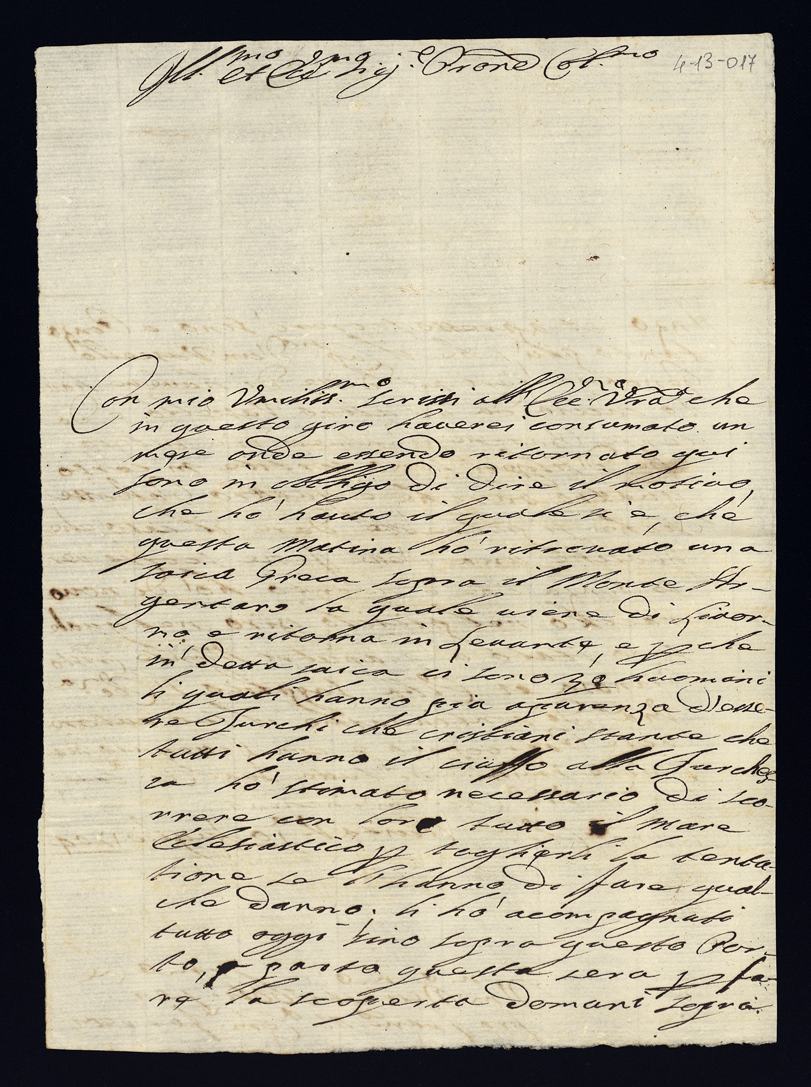 Ill.mo et Ecc.mo Sig.e Prone Col.mo
4-13-017
Con mio Vmiliss.mo scrissi all'Ecc.za Vra che
in questo giro haverei consumato un
mese onde essendo ritornato qui
sono in obbligo di dire il motivo
che hò hauto il quale si è, che
questa Matina hò ritrovato una
saica Greca sopra il Monte Ar-
gentaro la quale viene di Livor-
no, e ritorna in Levante, e p che
in detta saica ci sono huomini
li quali hanno più aparenza d'esse-
re Turchi che cristiani stante che
tutti hanno il ciuffo alla Turches
ca hò stimato necessario di sco-
rrere con loro tutto il mare
Eclesiastico p toglierli la tenta-
tione se l'hanno di fare qual-
che danno. li hò acompagnati
tutto oggi sino sopra questo Por-
to, e parto questa sera p fa-
re la scoperta domani sopra